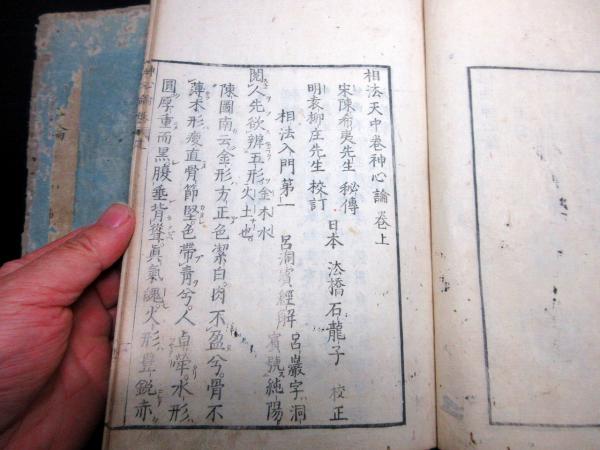 相法天中卷神心論 卷上
宋陳希夷先生 秘傳
明袁柳庄先生 校訂
日本 法橋石龍子 校正
相法入門第一 呂洞賓經解
呂巖字洞賓號純陽
閱人先欲辨五形
金木水火土也
陳圖南云金形方正色潔白肉不盈兮骨不
薄木形瘦直骨節堅色帶青兮人卓犖水形
圓厚重而黑腹垂背聳眞氣魄火形豊銳赤